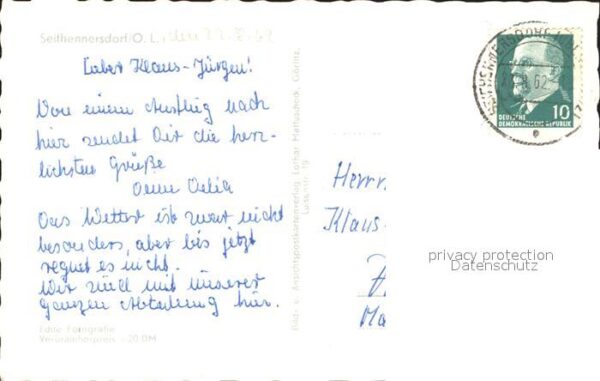 Seifhennersdorf/O. L., den 22.8.62
Lieber Klaus-Jürgen!
Von einem Ausflug nach
hier sendet Dir die herz-
lichsten Grüße
Das Wetter ist zwar nicht
besonders, aber bis jetzt
regnet es nicht.
Wir sind mit unserer
ganzen Abteilung hier.
Echte Fotografie
Verbraucherpreis -,20 DM
Bild- u. Ansichtspostkartenverlag Lothar Görlitz,
Herrn
Klaus-
privacy protection
Datenschutz
10
DEUTSCHE
DEMOKRATISCHE REPUBLIK